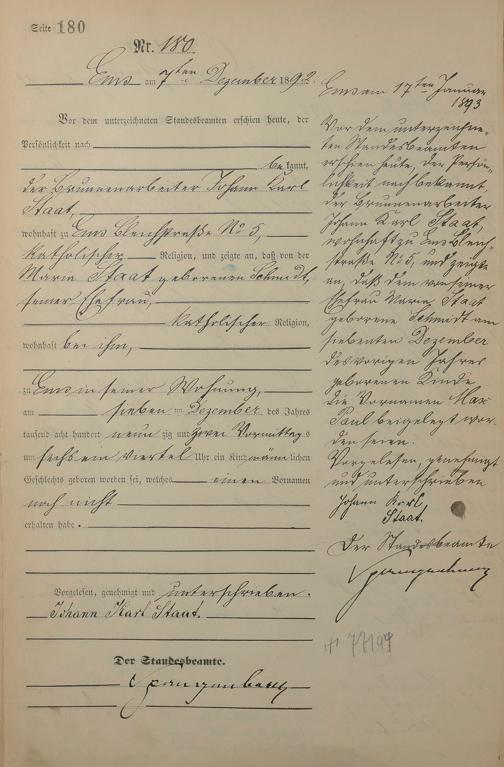 Seite 180
Nr. 180.
Ems am 7ten Dezember 1892.
Vor dem unterzeichneten Standesbeamten erschien heute, der
Persönlichkeit nach
bekannt,
der Brunnenarbeiter Johann Karl
Staat,
wohnhaft zu Ems Bleichstraße No 5,
katholischer Religion, und zeigte an, daß von der
Maria Staat geborenen Schmidt,
seiner Ehefrau,
katholischer Religion,
wohnhaft bei ihm,
zu Ems in seiner Wohnung,
am sieben ten Dezember des Jahres
tausend acht hundert neunzig und zwei Vormittags
um sechs ein viertel Uhr ein Kind männlichen
Geschlechts geboren worden sei, welches einen Vornamen
noch nicht
erhalten habe.
Vorgelesen, genehmigt und unterschrieben.
Johann Karl Staat.
Der Standesbeamte.
Spangenberg
Ems am 17ten Januar
1893
Vor dem unterzeichne-
ten Standesbeamten
erschien heute, der Persön-
lichkeit nach bekannt,
der Brunnenarbeiter
Johann Karl Staat,
wohnhaft zu Ems Bleich-
straße No 5, und zeigte
an, daß dem von seiner
Ehefrau Maria Staat
geborene Schmidt am
siebenten Dezember
des vorigen Jahres
geborenen Kinde
die Vornamen Max
Paul beigelegt wor-
den seien.
Vorgelesen, genehmigt
und unterschrieben
Johann Karl
Staat.
Der Standesbeamte
Spangenberg